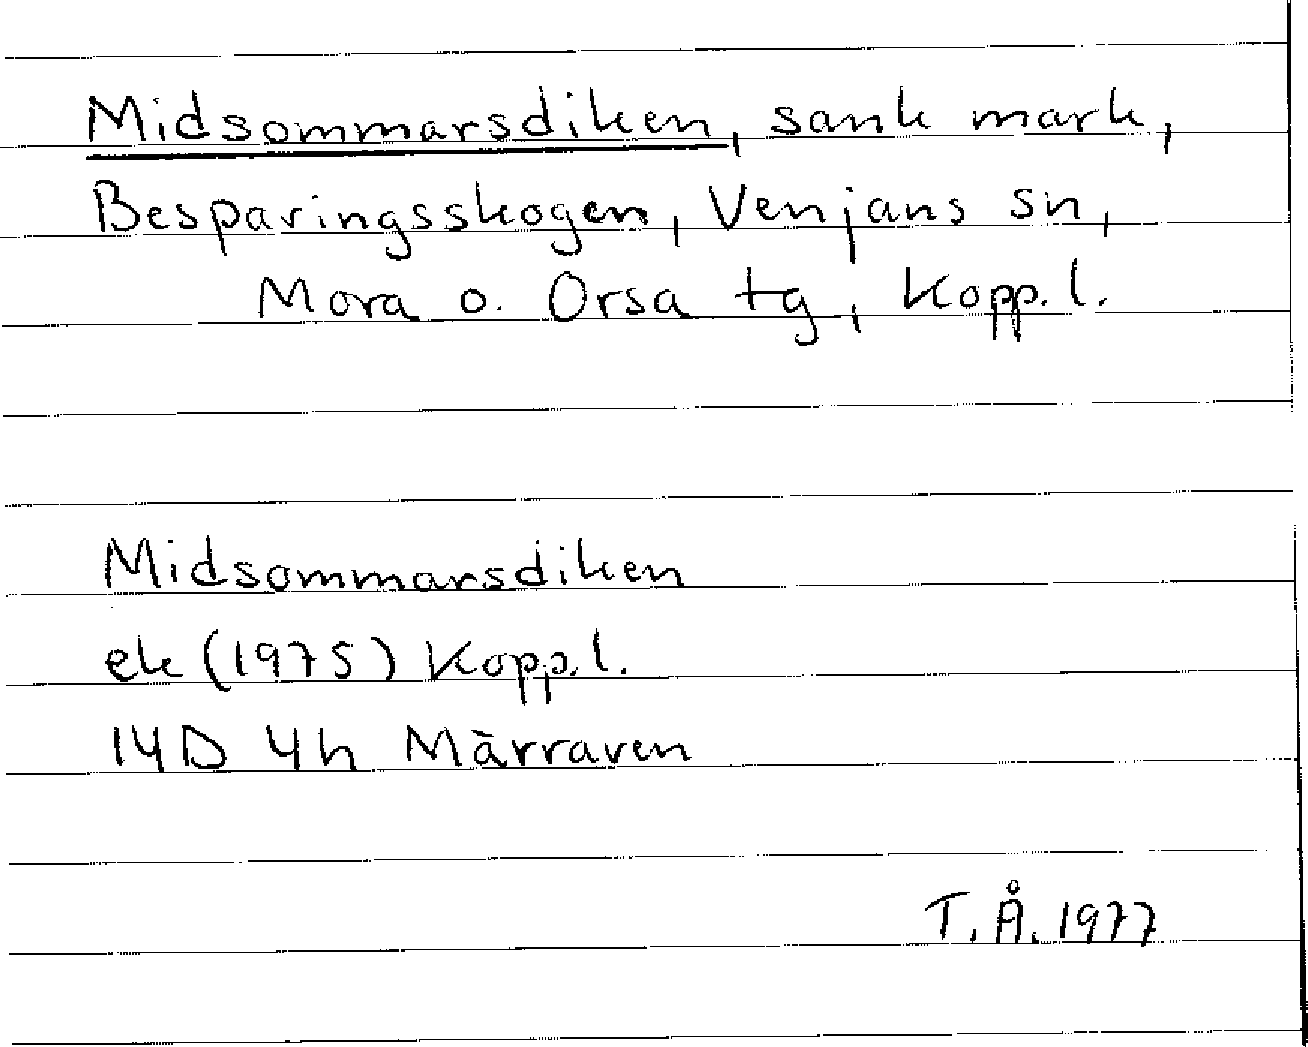 Midsommarsdiken, sank mark,
Besparingsskogen, Venjans sn,
Mora o. Orsa tg, Kopp. l.
Midsommarsdiken
ek (1975) Kopp. l.
14D 4h Märraven
T. Å. 1977